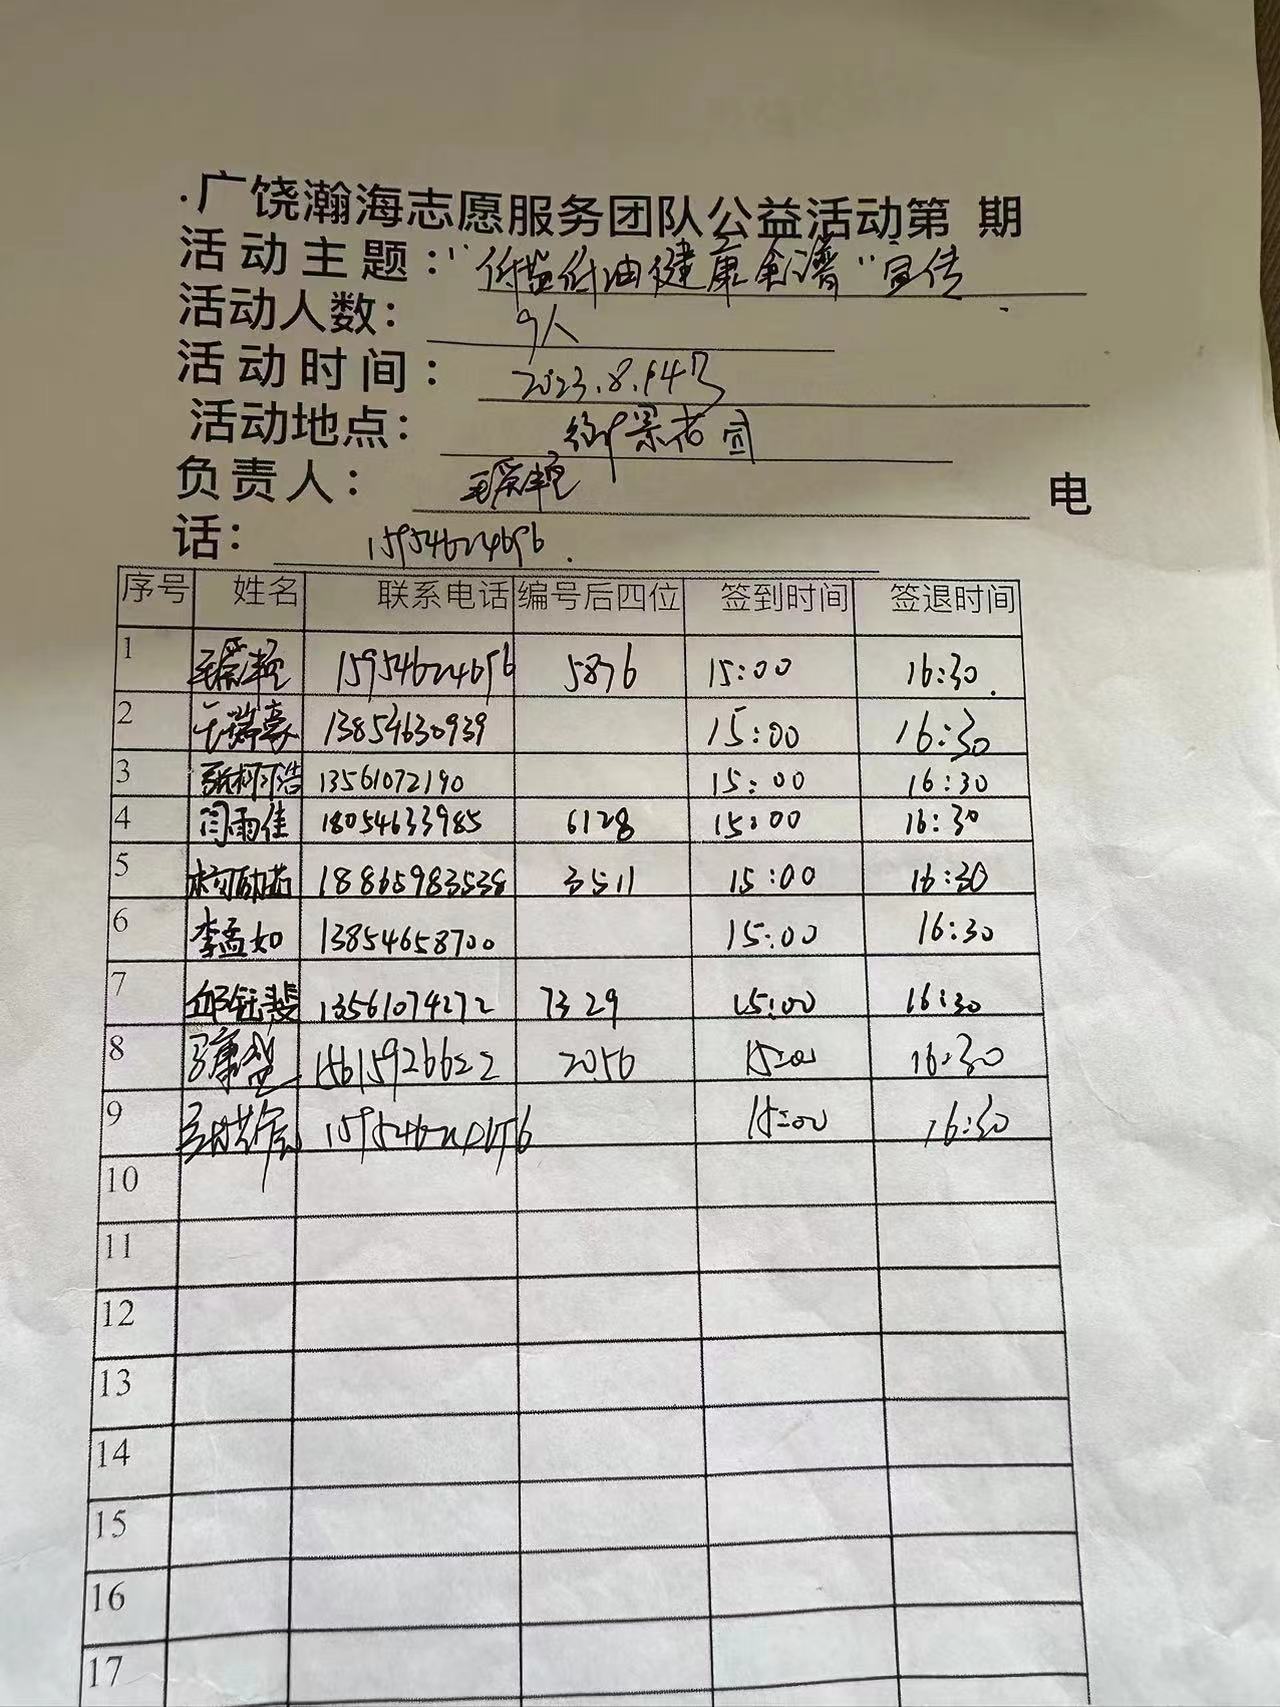 .广饶瀚海志愿服务团队公益活动第 期
活动主题："低盐低油健康食谱"宣传
活动人数： 9人
活动时间： 2023.8.14号
活动地点：
负责人： 电
话： 15954624696.
序号 姓名 联系电话 编号后四位 签到时间 签退时间
1 15954624696 5876 15:00 16:30.
2 王瑞豪 13854630939 15:00 16:30
3 张柯浩 13561072190 15:00 16:30
4 闫雨佳 18054633985 6128 15:00 16:30
5 18865983538 3511 15:00 16:30
6 李孟如 13854658700 15:00 16:30
7 邱钰斐 13561074272 7329 15:00 16:30
8 15615926622 2056 15:00 16:30
9 15:00 16:30
10
11
12
13
14
15
16
17